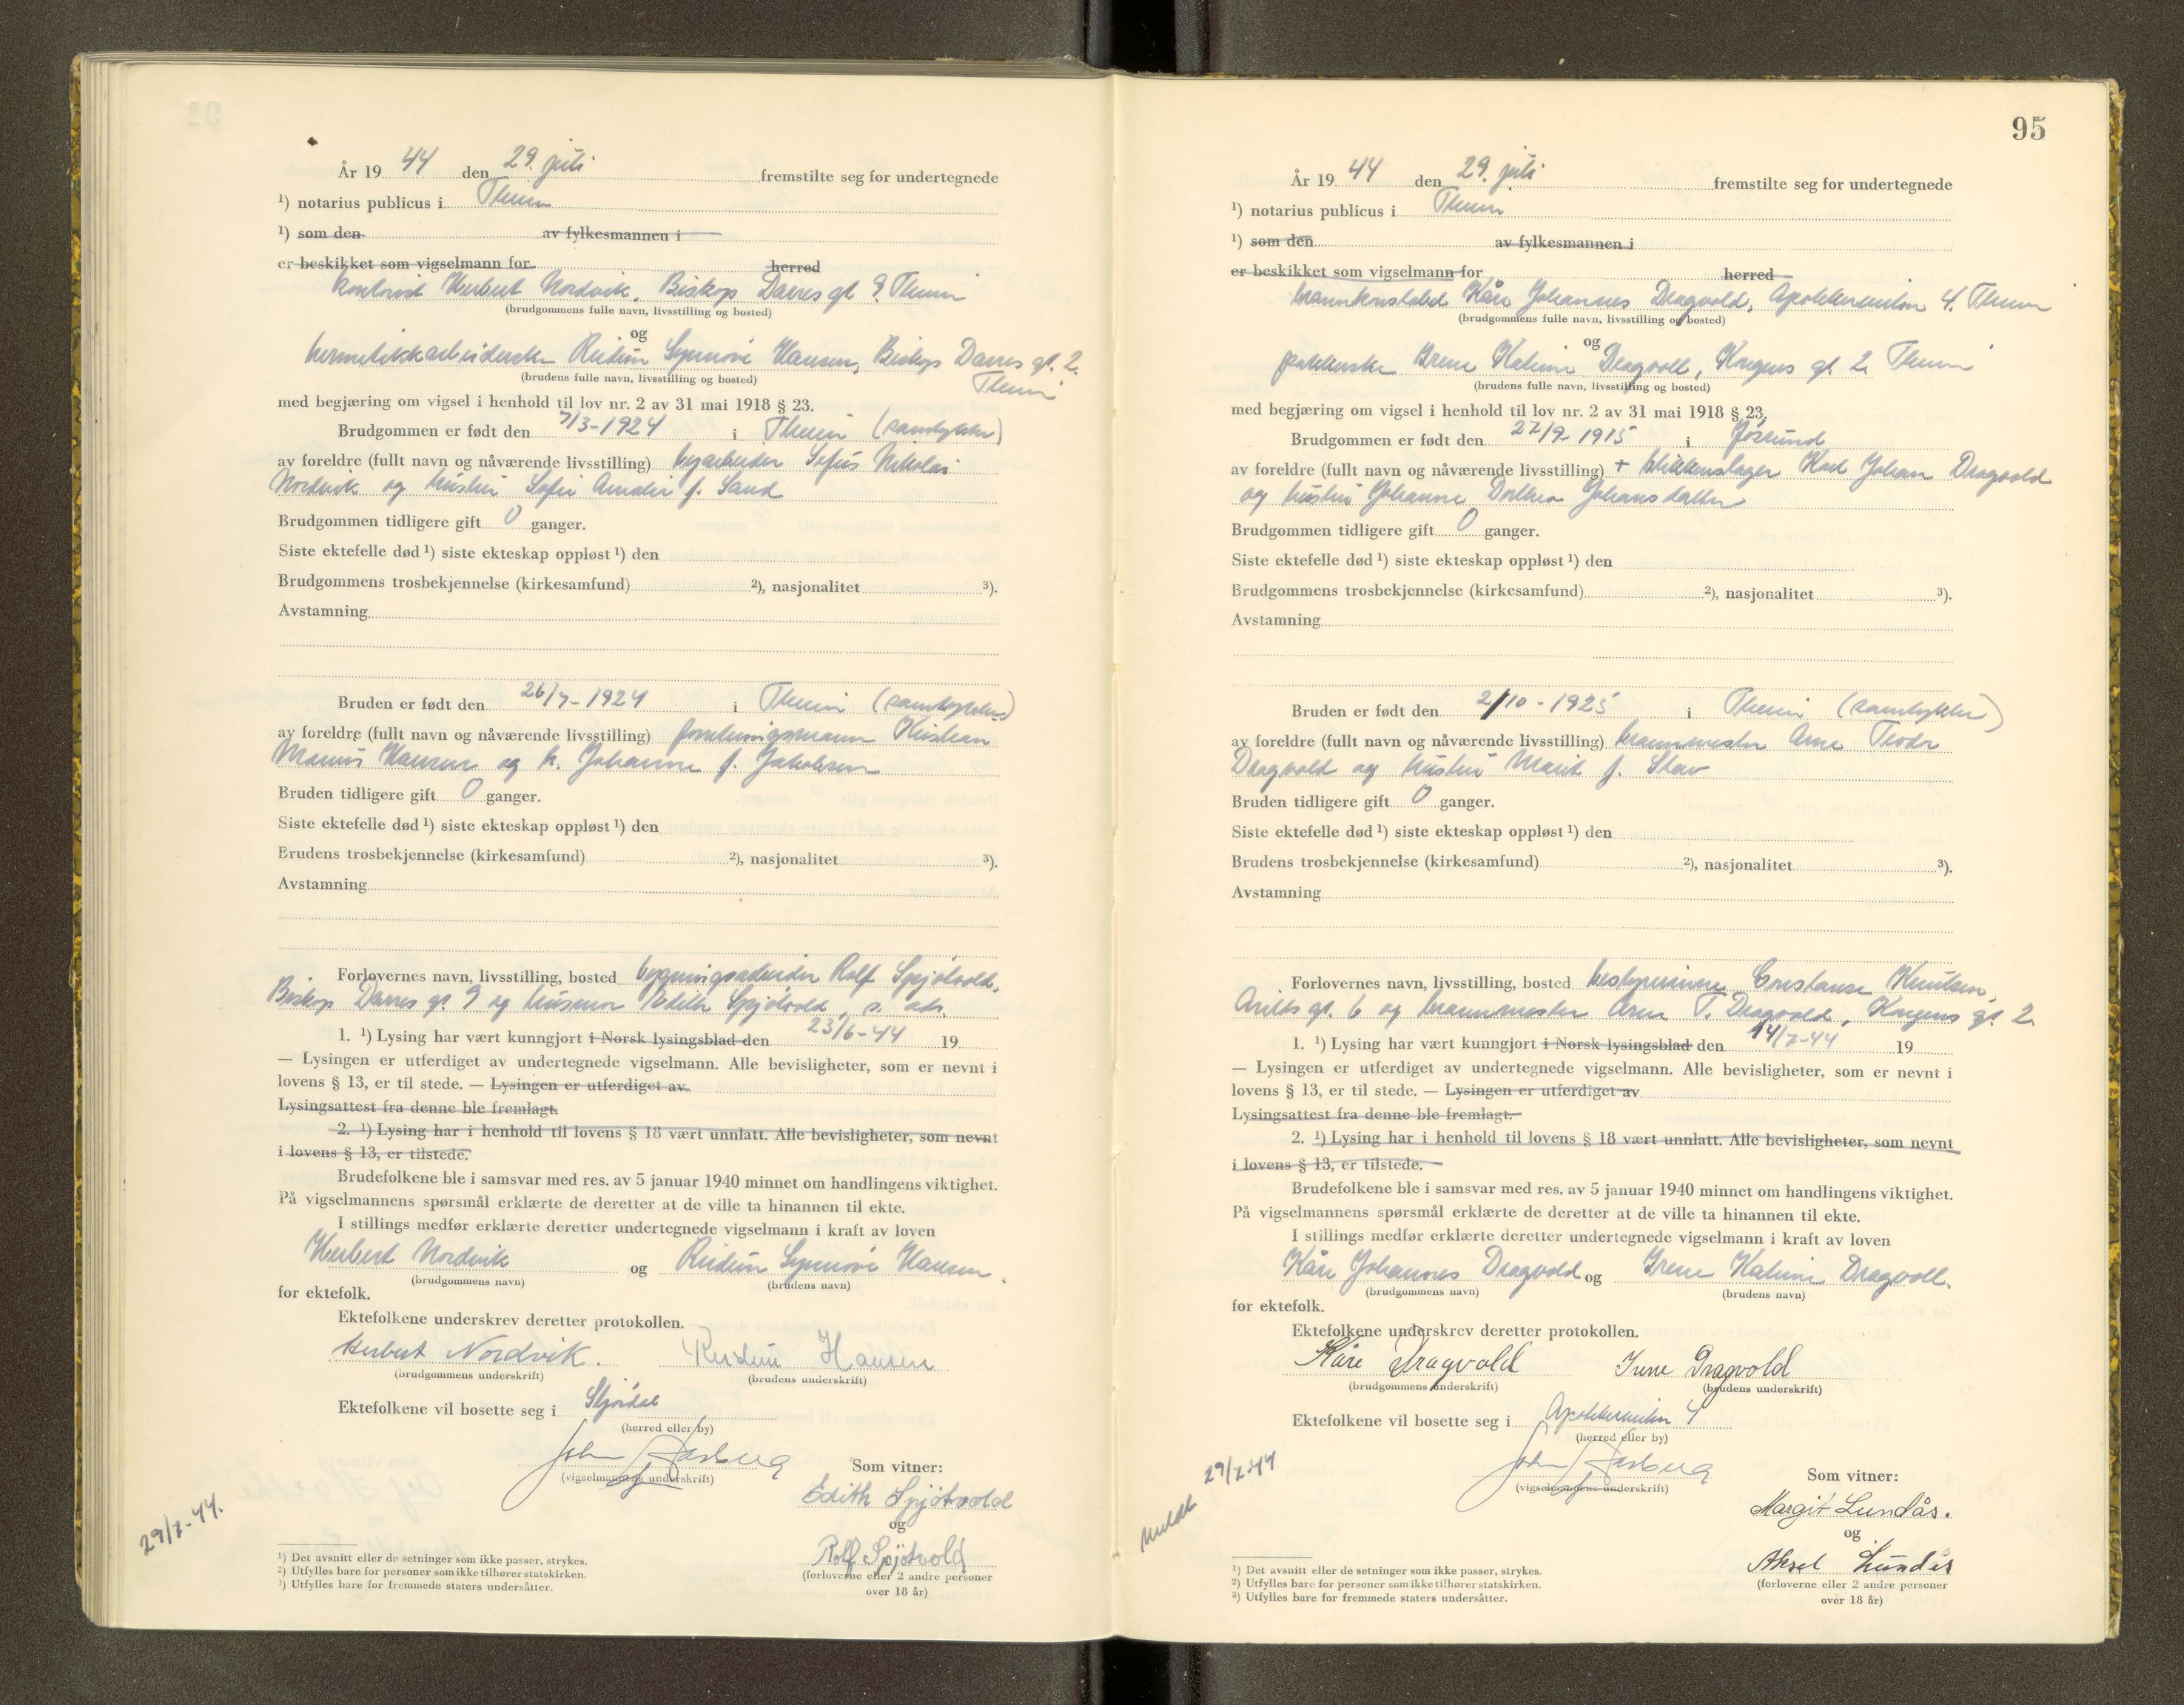 År 19 44 den 29. juli fremstilte seg for undertegnede
¹) notarius publicus i Theim
¹) som den av fylkesmannen i
er beskikket som vigselmann for herred
kontorist Herbert Nordvik, Biskop Darres gt 9. Theim
(brudgommens fulle navn, livsstilling og bosted)
og
hermetikkarbeiderske Reidun Synnöve Hansen, Biskop Darres gt. 2.
Theim
(brudens fulle navn, livsstilling og bosted)
med begjæring om vigsel i henhold til lov nr. 2 av 31 mai 1918 § 23.
Brudgommen er født den 7/3-1924 i Theim (samtykke)
av foreldre (fullt navn og nåværende livsstilling) byarbeider Sofus Nikolai
Nordvik og hustru Sofie Amalie f. Sand
Brudgommen tidligere gift 0 ganger.
Siste ektefelle død ¹) siste ekteskap oppløst ¹) den
Brudgommens trosbekjennelse (kirkesamfund) ²), nasjonalitet ³).
Avstamning
Bruden er født den 26/7-1924 i Theim (samtykke)
av foreldre (fullt navn og nåværende livsstilling) forretningsmann Kristian
Marius Hansen og h. Johanne f. Jakobsen
Bruden tidligere gift 0 ganger.
Siste ektefelle død ¹) siste ekteskap oppløst ¹) den
Brudens trosbekjennelse (kirkesamfund) ²), nasjonalitet ³).
Avstamning
Forlovernes navn, livsstilling, bosted bygningsarbeider Rolf Spjötvold,
Biskop Darres gt. 9 og husmor Edith Spjötvold, s. adr.
1. ¹) Lysing har vært kunngjort i Norsk lysingsblad den 23/6-44 19
— Lysingen er utferdiget av undertegnede vigselmann. Alle bevisligheter, som er nevnt i
lovens § 13, er til stede. — Lysingen er utferdiget av
Lysingsattest fra denne ble fremlagt.
2. ¹) Lysing har i henhold til lovens § 18 vært unnlatt. Alle bevisligheter, som nevnt
i lovens § 13, er tilstede.
Brudefolkene ble i samsvar med res. av 5 januar 1940 minnet om handlingens viktighet.
På vigselmannens spørsmål erklærte de deretter at de ville ta hinannen til ekte.
I stillings medfør erklærte deretter undertegnede vigselmann i kraft av loven
Herbert Nordvik og Reidun Synnöve Hansen.
(brudgommens navn) (brudens navn)
for ektefolk.
Ektefolkene underskrev deretter protokollen.
Herbert Nordvik. Reidun Hansen
(brudgommens underskrift) (brudens underskrift)
Ektefolkene vil bosette seg i Stjördal
(herred eller by)
John Aasberg
(vigselmannens underskrift)
Som vitner:
Edith Spjötvold
og
Rolf Spjötvold
(forloverne eller 2 andre personer
over 18 år)
29/7-44.
¹) Det avsnitt eller de setninger som ikke passer, strykes.
²) Utfylles bare for personer som ikke tilhører statskirken.
³) Utfylles bare for fremmede staters undersåtter.
95
År 19 44 den 29. juli fremstilte seg for undertegnede
¹) notarius publicus i Theim
¹) som den av fylkesmannen i
er beskikket som vigselmann for herred
brannkonstabel Kåre Johannes Dragvold, Apotekerveiten 4. Theim
(brudgommens fulle navn, livsstilling og bosted)
og
pakkerske Irene Katrine Dragvoll, Kongens gt. 2. Theim
(brudens fulle navn, livsstilling og bosted)
med begjæring om vigsel i henhold til lov nr. 2 av 31 mai 1918 § 23.
Brudgommen er født den 27/9 1915 i Jössund
av foreldre (fullt navn og nåværende livsstilling) + blikkenslager Karl Johan Dragvold
og hustru Johanne Dorthea Johansdatter
Brudgommen tidligere gift 0 ganger.
Siste ektefelle død ¹) siste ekteskap oppløst ¹) den
Brudgommens trosbekjennelse (kirkesamfund) ²), nasjonalitet ³).
Avstamning
Bruden er født den 2/10-1925 i Theim (samtykke)
av foreldre (fullt navn og nåværende livsstilling) brannmester Arne Teodr
Dragvold og hustru Marit f. Stav
Bruden tidligere gift 0 ganger.
Siste ektefelle død ¹) siste ekteskap oppløst ¹) den
Brudens trosbekjennelse (kirkesamfund) ²), nasjonalitet ³).
Avstamning
Forlovernes navn, livsstilling, bosted bestyrerinne Constanse Knutsen,
Arilds gt. 6 og brannmester Arne T. Dragvold, Kongens gt. 2.
1. ¹) Lysing har vært kunngjort i Norsk lysingsblad den 14/7-44 19
— Lysingen er utferdiget av undertegnede vigselmann. Alle bevisligheter, som er nevnt i
lovens § 13, er til stede. — Lysingen er utferdiget av
Lysingsattest fra denne ble fremlagt.
2. ¹) Lysing har i henhold til lovens § 18 vært unnlatt. Alle bevisligheter, som nevnt
i lovens § 13, er tilstede.
Brudefolkene ble i samsvar med res. av 5 januar 1940 minnet om handlingens viktighet.
På vigselmannens spørsmål erklærte de deretter at de ville ta hinannen til ekte.
I stillings medfør erklærte deretter undertegnede vigselmann i kraft av loven
Kåre Johannes Dragvold og Irene Katrine Dragvoll.
(brudgommens navn) (brudens navn)
for ektefolk.
Ektefolkene underskrev deretter protokollen.
Kåre Dragvold Irene Dragvold
(brudgommens underskrift) (brudens underskrift)
Ektefolkene vil bosette seg i Apotekerveiten 4
(herred eller by)
John Aasberg
(vigselmannens underskrift)
Som vitner:
Margit Lundås.
og
Aksel Lundås
(forloverne eller 2 andre personer
over 18 år)
meldt 29/7-44
¹) Det avsnitt eller de setninger som ikke passer, strykes.
²) Utfylles bare for personer som ikke tilhører statskirken.
³) Utfylles bare for fremmede staters undersåtter.